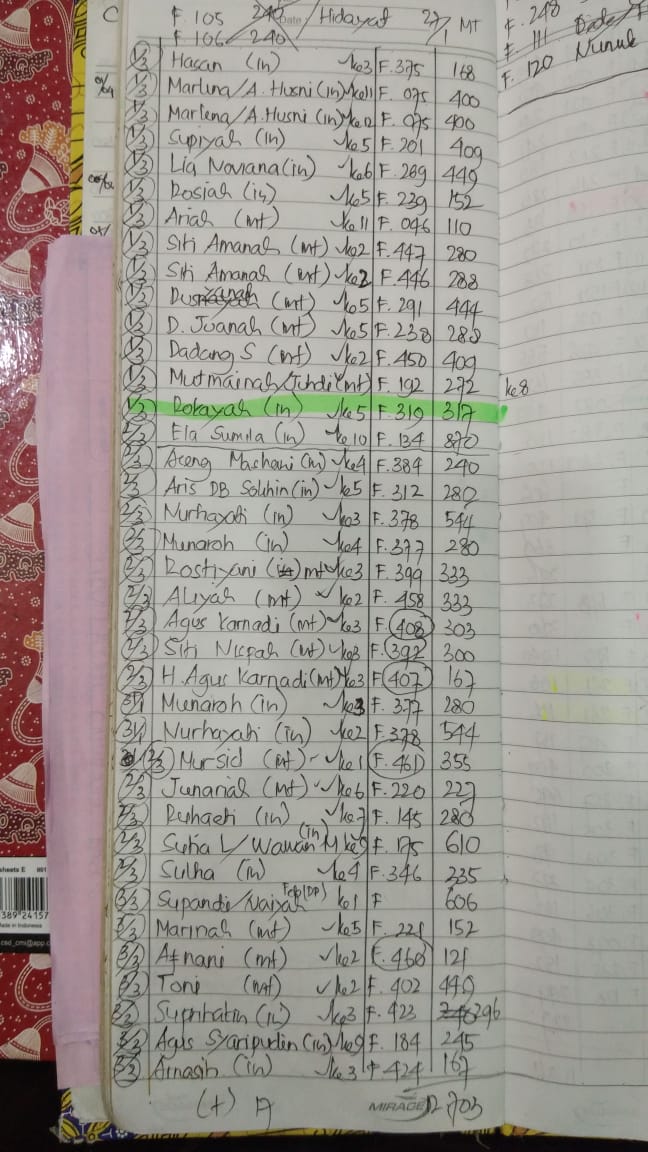 F. 105 240 Date / Hidayat 27/1 MT
F. 106 240
F. 248
F. 111 Date/
F. 120 Nunuk
1/3 Hasan (in) ke3 F. 375 168
1/3 Marlena/A. Husni (in) ke11 F. 075 400
1/3 Marlena/A. Husni (in) ke12 F. 075 400
1/3 Supiyah (in) ke5 F. 201 409
1/3 Lia Noviana (in) ke6 F. 269 449
1/3 Rosiah (in) ke5 F. 239 152
1/3 Ariah (mt) ke11 F. 046 110
1/3 Siti Amanah (mt) ke2 F. 447 280
1/3 Siti Amanah (mt) ke2 F. 446 288
1/3 (mt) ke5 F. 291 444
1/3 D. Juanah (mt) ke5 F. 238 288
1/3 Dadang S (mt) ke2 F. 450 409
1/3 Mutmainah/Juhdi (mt) F. 192 272 ke8
1/3 Rokayah (in) ke5 F. 319 317
2/3 Ela Sumila (in) ke10 F. 134 870
2/3 Aceng Machani (in) ke4 F. 384 240
2/3 Aris DB Solihin (in) ke5 F. 312 280
2/3 Nurhayati (in) ke3 F. 378 544
2/3 Munaroh (in) ke4 F. 377 280
2/3 Rostiyani mt ke3 F. 399 333
2/3 Aliyah (mt) ke2 F. 458 333
2/3 Agus Karnadi (mt) ke3 F. 408 303
2/3 Siti Nispah (mt) ke3 F. 392 300
2/3 H. Agus Karnadi (mt) ke3 F. 407 167
31/1 Munaroh (in) ke3 F. 377 280
31/1 Nurhayati (in) ke2 F. 378 544
2/3 Mursid (mt) ke1 F. 461 355
2/3 Junariah (mt) ke6 F. 220 227
2/3 Ruhaeti (in) ke7 F. 145 280
2/3 Sutia L/Wawan M (in) ke9 F. 175 610
2/3 Sulha (in) ke4 F. 346 235
3/3 Supandi/Naiyah (DP) ke1 F 606
3/3 Marinah (mt) ke5 F. 221 152
3/3 Asnani (mt) ke2 F. 460 121
3/3 Toni (mt) ke2 F. 402 449
3/3 Suprihatin (in) ke3 F. 423 296
3/3 Agus Syaripudin (in) ke9 F. 184 245
3/3 Arnasih (in) ke3 F 424 167
(+) 17 MIRAGE 12 703
sheets E
389"24157
Made in Indonesia